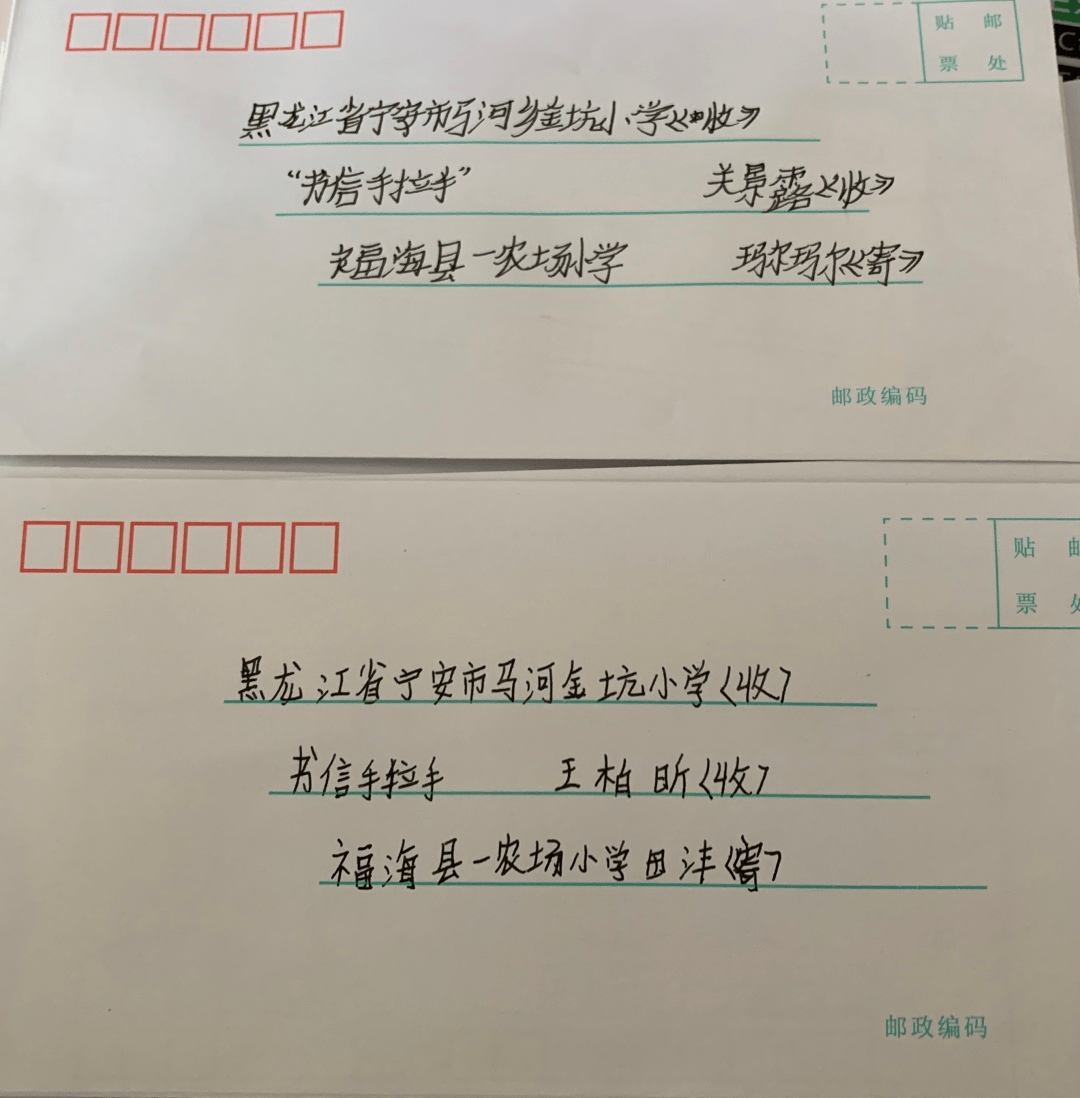 贴 邮
票 处
黑龙江省宁安市马河乡金坑小学《收》
“书信手拉手” 关景露《收》
福海县一农场小学 玛尔玛尔《寄》
邮政编码
贴 邮
票 处
黑龙江省宁安市马河金坑小学〈收〉
书信手拉手 王柏昕〈收〉
福海县一农场小学田沣〈寄〉
邮政编码